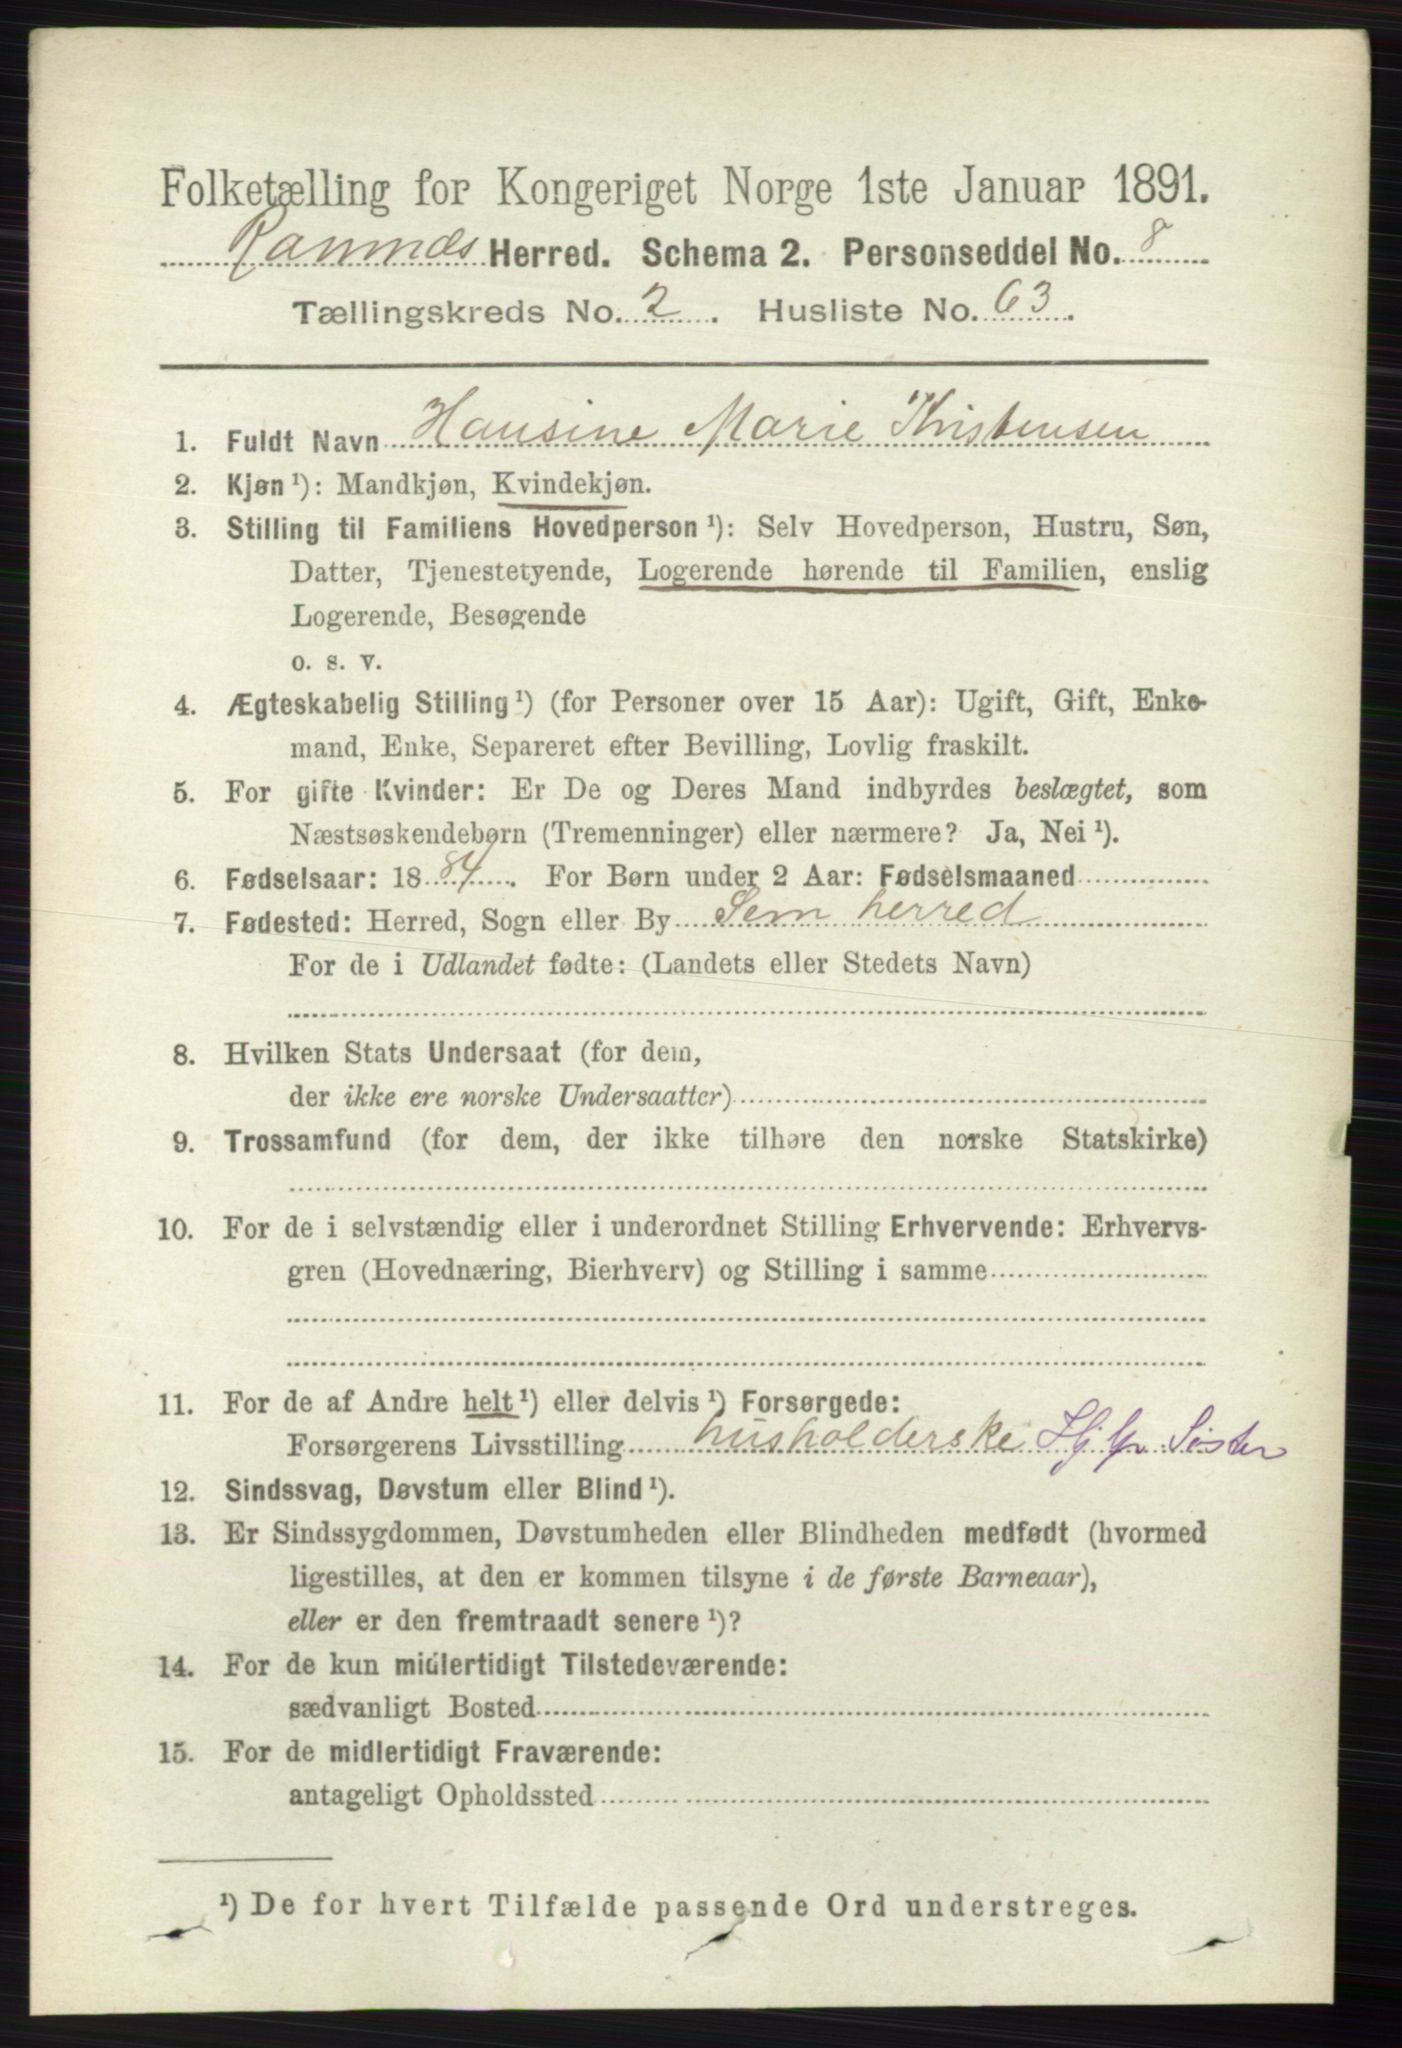 Folketælling for Kongeriget Norge 1ste Januar 1891.
Ramnæs Herred. Schema 2. Personseddel No. 8
Tællingskreds No. 2. Husliste No. 63.
1. Fuldt Navn Hansine Marie Kristensen
2. Kjøn ¹): Mandkjøn, Kvindekjøn.
3. Stilling til Familiens Hovedperson ¹): Selv Hovedperson, Hustru, Søn,
Datter, Tjenestetyende, Logerende hørende til Familien, enslig
Logerende, Besøgende
o. s. v.
4. Ægteskabelig Stilling ¹) (for Personer over 15 Aar): Ugift, Gift, Enke-
mand, Enke, Separeret efter Bevilling, Lovlig fraskilt.
5. For gifte Kvinder: Er De og Deres Mand indbyrdes beslægtet, som
Næstsøskendebørn (Tremenninger) eller nærmere? Ja, Nei ¹).
6. Fødselsaar: 1884. For Børn under 2 Aar: Fødselsmaaned
7. Fødested: Herred, Sogn eller By Sem herred
For de i Udlandet fødte: (Landets eller Stedets Navn)
8. Hvilken Stats Undersaat (for dem,
der ikke ere norske Undersaatter)
9. Trossamfund (for dem, der ikke tilhøre den norske Statskirke)
10. For de i selvstændig eller i underordnet Stilling Erhvervende: Erhvervs-
gren (Hovednæring, Bierhverv) og Stilling i samme
11. For de af Andre helt ¹) eller delvis ¹) Forsørgede:
Forsørgerens Livsstilling husholderske Søster
12. Sindssvag, Døvstum eller Blind ¹).
13. Er Sindssygdommen, Døvstumheden eller Blindheden medfødt (hvormed
ligestilles, at den er kommen tilsyne i de første Barneaar),
eller er den fremtraadt senere ¹)?
14. For de kun midlertidigt Tilstedeværende:
sædvanligt Bosted
15. For de midlertidigt Fraværende:
antageligt Opholdssted
¹) De for hvert Tilfælde passende Ord understreges.